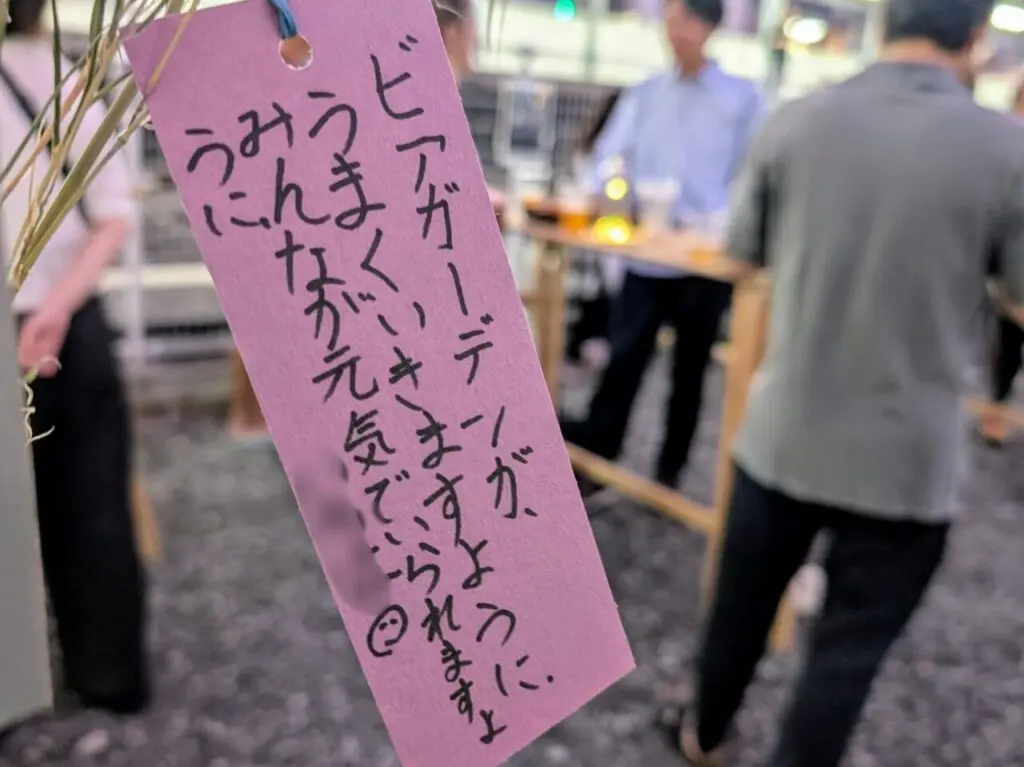 ビアガーデンが、
うまくいきますように.
みんなが元気でいられますよ
うに、